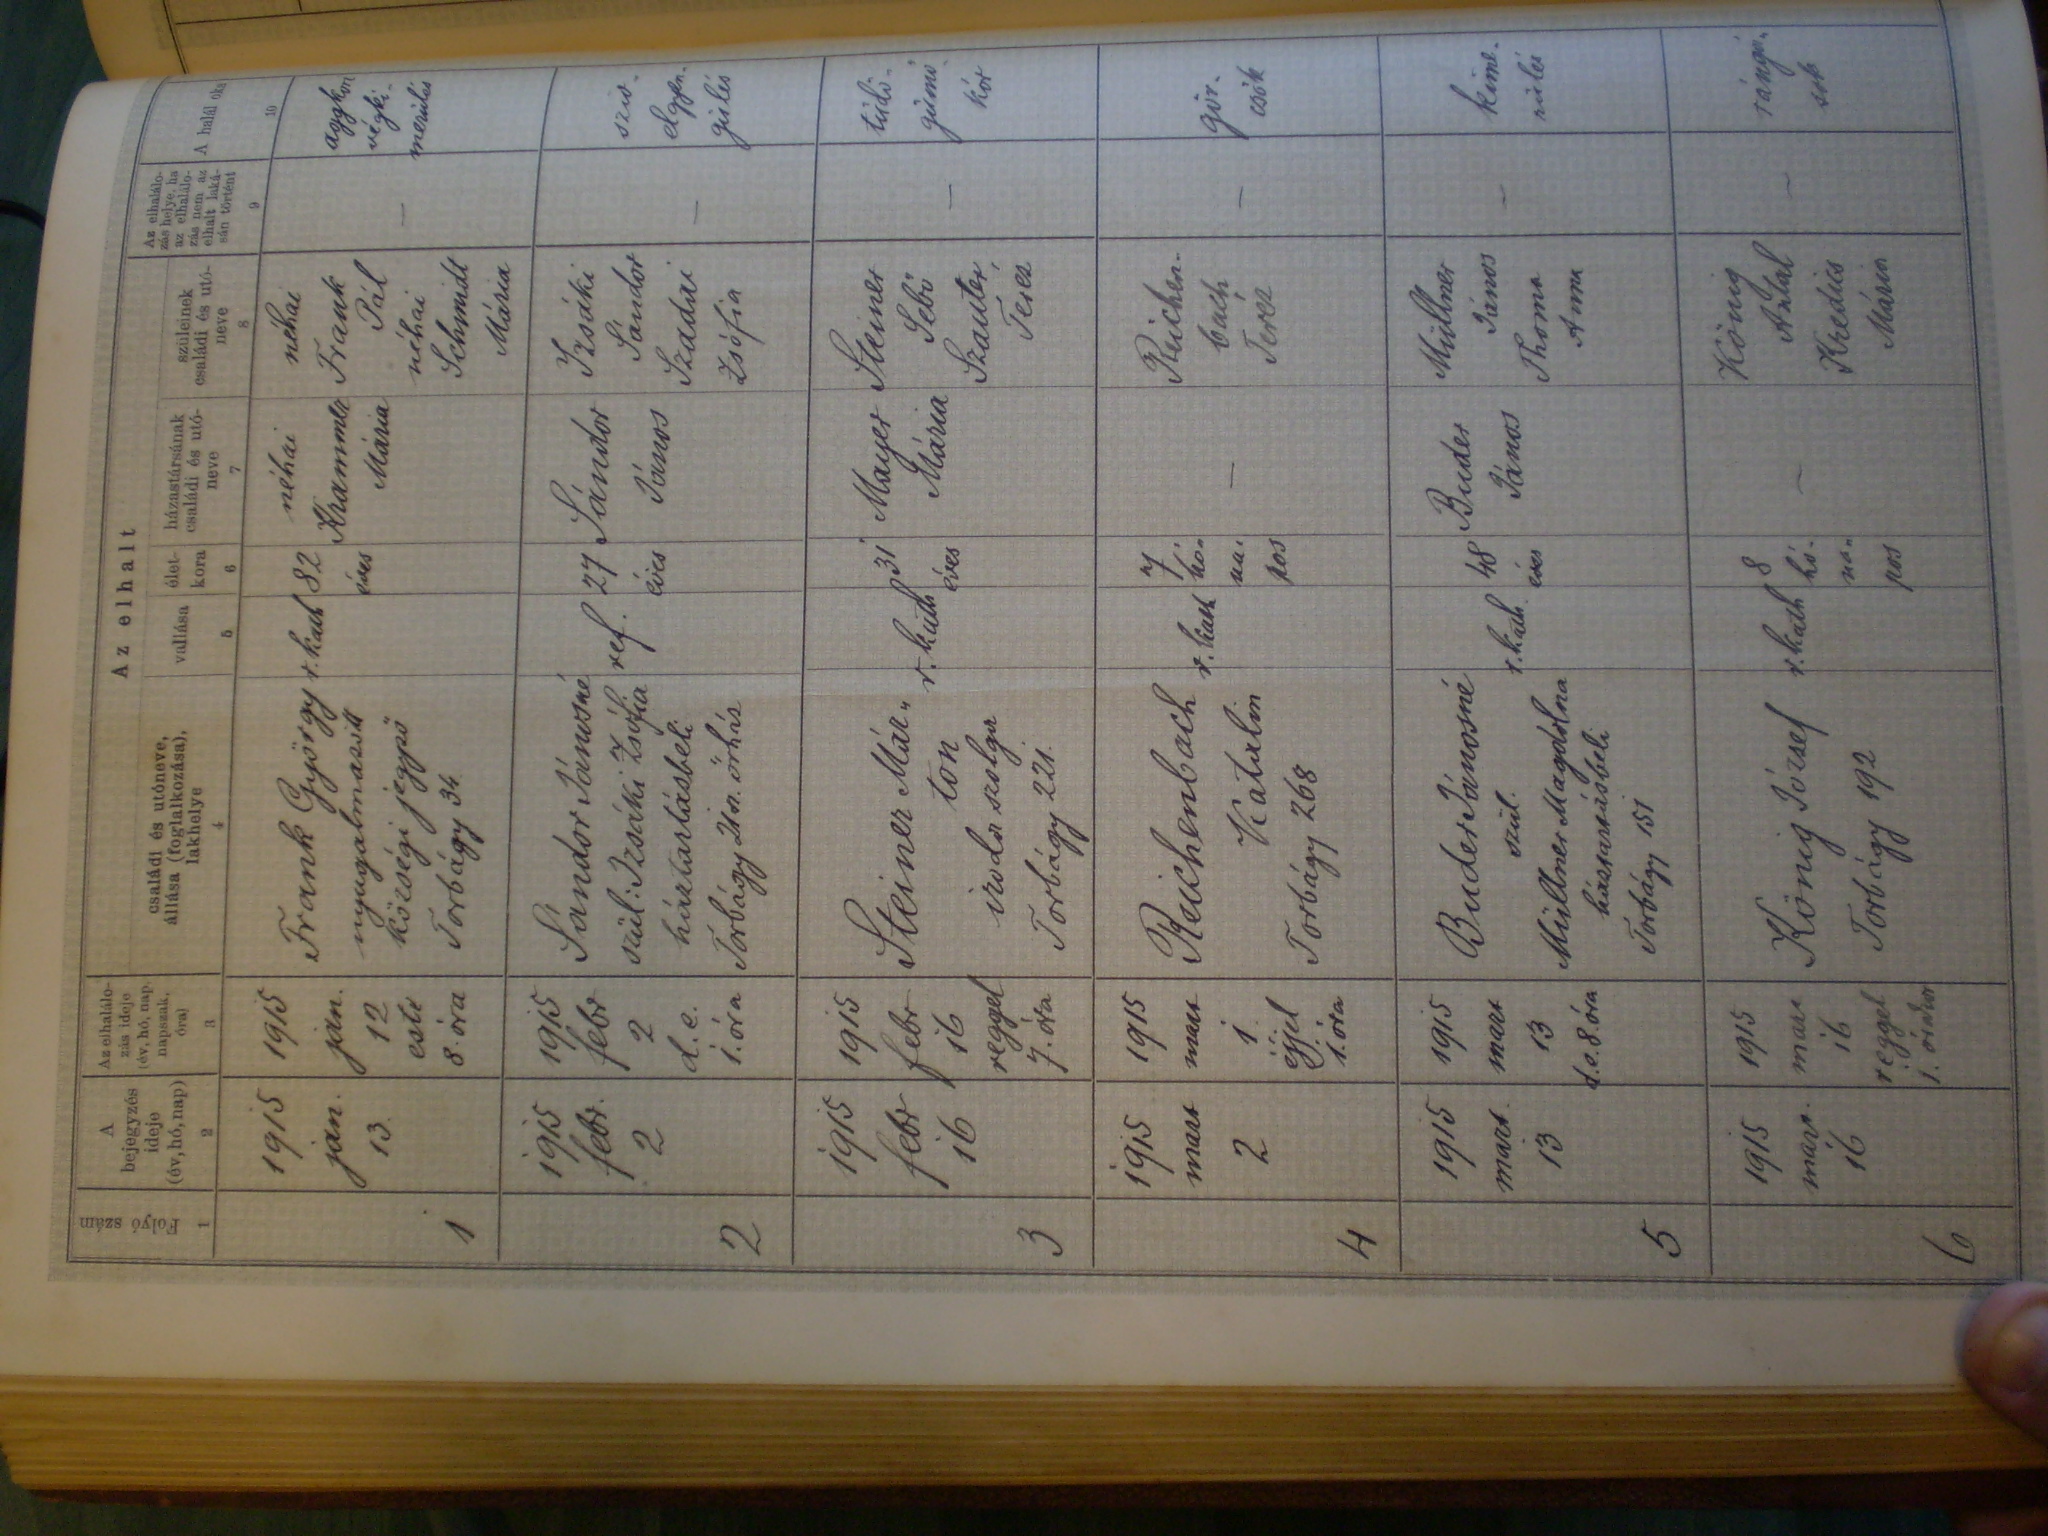 Az elhalt
Folyó szám
A bejegyzés ideje (év, hó, nap)
Az elhalálo-
zás ideje
(év, hó, nap,
napszak,
óra)
családi és utóneve,
állása (foglalkozása),
lakhelye
vallása
élet-
kora
házastársának
családi és utó-
neve
szüleinek
családi és utó-
neve
Az elhalálo-
zás helye, ha
az elhalálo-
zás nem az
elhalt laká-
sán történt
A halál oka
1
2
3
4
5
6
7
8
9
10
1
1915
jan.
13.
1915
jan.
12
este
8. óra
Frank György
nyugalmazott
községi jegyző
Torbágy 34
r. kath
82
éves
néhai
Krammer
Mária
néhai
Frank
Pál
néhai
Schmidt
Mária
—
aggkori
végki-
merülés
2
1915
febr.
2
1915
febr
2
d. e.
1. óra
Sándor Jánosné
szül: Izsáki Zsófia
háztartásbeli
Torbágy 21 sz. őrház
ref.
27
éves
Sándor
János
Izsáki
Sándor
Szadai
Zsófia
—
sziv-
elgyen-
gülés
3
1915
febr
16
1915
febr
16
reggel
7. óra
Steiner Már-
ton
iroda szolga
Torbágy 221.
r. kath
31
éves
Mayer
Mária
Steiner
Sebő
Szauter
Teréz
—
tüdő-
gümő
kór
4
1915
mart
2
1915
mart
1
éjjel
1. óra
Reichenbach
Katalin
Torbágy 268
r. kath
7
hó-
na-
pos
—
Reichen-
bach
Teréz
—
gör-
csök
5
1915
mart.
13
1915
mart
13
d. e. 8. óra
Buder Jánosné
szül.
Müllner Magdolna
háztartásbeli
Torbágy 151
r. kath.
48
éves
Buder
János
Müllner
János
Thoma
Anna
—
kime-
rülés
6
1915
mart.
16
1915
mart
16
reggel
1. órakor
König József
Torbágy 192
r. kath
8
hó-
na-
pos
—
König
Antal
Kredics
Mária
—
rángó-
sok